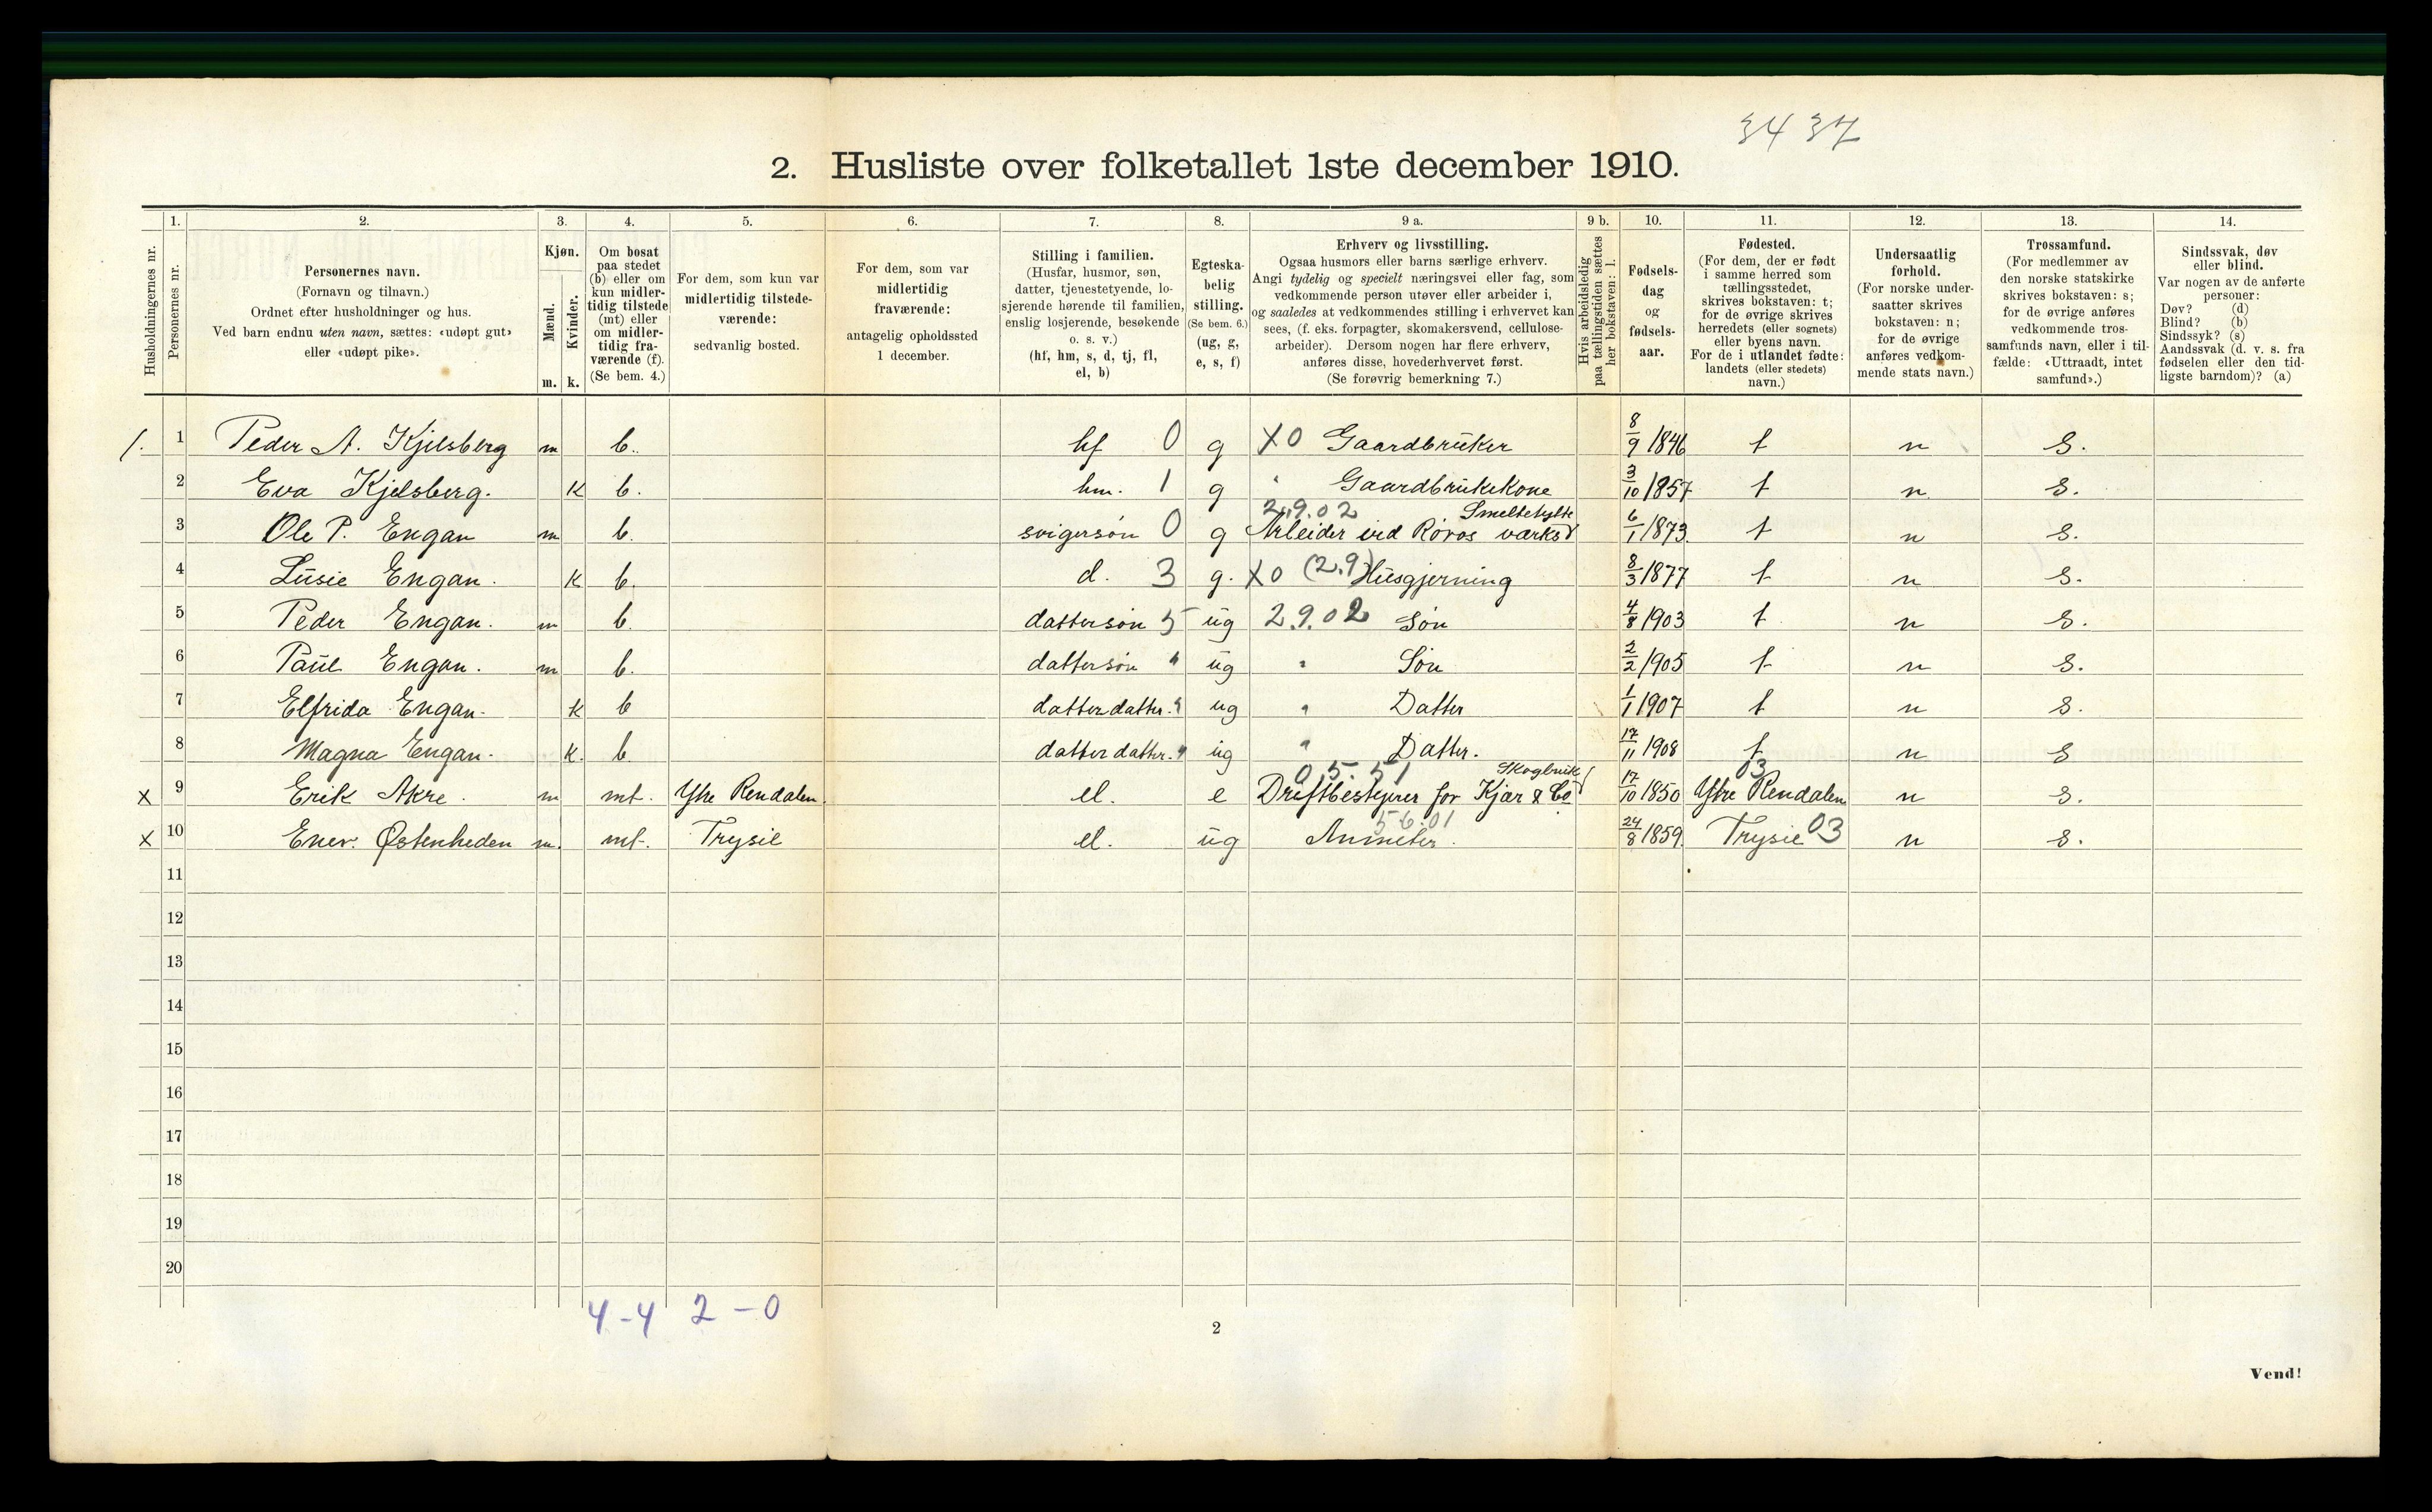 3437
2. Husliste over folketallet 1ste december 1910.
Husholdningernes nr.
1.
Personernes nr.
2.
Personernes navn.
(Fornavn og tilnavn.)
Ordnet efter husholdninger og hus.
Ved barn endnu uten navn, sættes: «udøpt gut»
eller «udøpt pike».
3.
Kjøn.
Mænd.
Kvinder.
m. k.
4.
Om bosat
paa stedet
(b) eller om
kun midler-
tidig tilstede
(mt) eller
om midler-
tidig fra-
værende (f).
(Se bem. 4.)
5.
For dem, som kun var
midlertidig tilstede-
værende:
sedvanlig bosted.
6.
For dem, som var
midlertidig
fraværende:
antagelig opholdssted
1 december.
7.
Stilling i familien.
(Husfar, husmor, søn,
datter, tjenestetyende, lo-
sjerende hørende til familien,
enslig losjerende, besøkende
o. s. v.)
(hf, hm, s, d, tj, fl,
el, b)
8.
Egteska-
belig
stilling.
(Se bem. 6.)
(ug, g,
e, s, f)
9 a.
Erhverv og livsstilling.
Ogsaa husmors eller barns særlige erhverv.
Angi tydelig og specielt næringsvei eller fag, som
vedkommende person utøver eller arbeider i,
og saaledes at vedkommendes stilling i erhvervet kan
sees, (f. eks. forpagter, skomakersvend, cellulose-
arbeider). Dersom nogen har flere erhverv,
anføres disse, hovederhvervet først.
(Se forøvrig bemerkning 7.)
9 b.
Hvis arbeidsledig
paa tællingstiden sættes
her bokstaven: l.
10.
Fødsels-
dag
og
fødsels-
aar.
11.
Fødested.
(For dem, der er født
i samme herred som
tællingsstedet,
skrives bokstaven: t;
for de øvrige skrives
herredets (eller sognets)
eller byens navn.
For de i utlandet fødte:
landets (eller stedets)
navn.)
12.
Undersaatlig
forhold.
(For norske under-
saatter skrives
bokstaven: n;
for de øvrige
anføres vedkom-
mende stats navn.)
13.
Trossamfund.
(For medlemmer av
den norske statskirke
skrives bokstaven: s;
for de øvrige anføres
vedkommende tros-
samfunds navn, eller i til-
fælde: «Uttraadt, intet
samfund».)
14.
Sindssvak, døv
eller blind.
Var nogen av de anførte
personer:
Døv? (d)
Blind? (b)
Sindssyk? (s)
Aandssvak (d. v. s. fra
fødselen eller den tid-
ligste barndom)? (a)
1. 1 Peder A. Kjelsberg m b. hf 0 g X0 Gaardbruker 8/9 1846 t n s.
2 Eva Kjelsberg. k b. hm. 1 g " Gaardbrukekone 3/10 1857 t n s.
2.9.02 Smeltehytte
3 Ole P. Engan m b. svigersøn 0 g Arbeider ved Røros værks 6/1 1873. t n s.
4 Lusie Engan. k b. d. 3 g. X0 (2.9) Husgjerning 8/3 1877 t n s.
5 Peder Engan. m b. dattersøn 5 ug 2.9.02 Søn 4/8 1903 t n s.
6 Paul Engan. m b. dattersøn " ug " Søn 2/2 1905 t n s.
7 Elfrida Engan. k b datterdatter. " ug " Datter 1/1 1907 t n s.
8 Magna Engan. k. b datterdatter. " ug " Datter. 17/11 1908 t n s
05.51 Skogbruk 03
x 9 Erik Akre. m mt. Ytre Rendalen. el. e Driftbestyrer for Kjær & Co 17/10 1850 Ytre Rendalen n s.
56.01
x 10 Ener. Østenheden m. mt. Trysil el. ug Anmeter. 24/8 1859. Trysil 03 n s.
11
12
13
14
15
16
17
18
19
20
4-4 2-0
2
Vend!